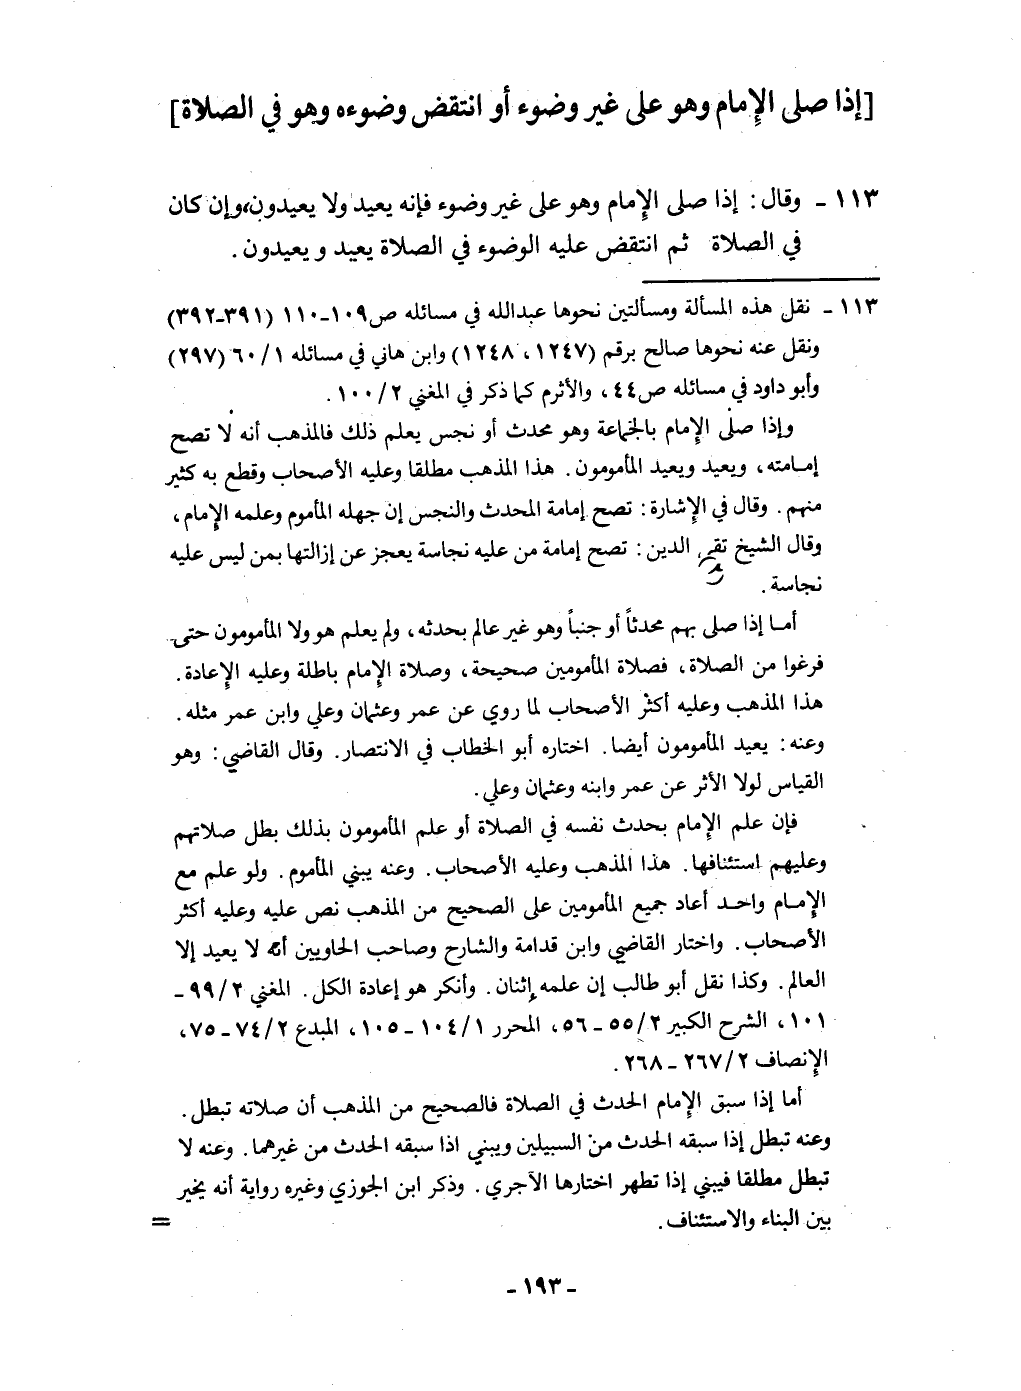 [إذا صلى الإمام وهو على غير وضوء أو انتقض وضوءه وهو في الصلاة]
١١٣ ـ وقال: إذا صلى الإمام وهو على غير وضوء فإنه يعيد ولا يعيدون، وإن كان
في الصلاة ثم انتقض عليه الوضوء في الصلاة يعيد و يعيدون.
١١٣ ـ نقل هذه المسألة ومسألتين نحوها عبدالله في مسائله ص١٠٩-١١٠ (٣٩١-٣٩٢)
ونقل عنه نحوها صالح برقم (١٢٤٧، ١٢٤٨) وابن هاني في مسائله ٦٠/١ (٢٩٧)
وأبو داود في مسائله ص٤٤، والأثرم كما ذكر في المغني ١٠٠/٢.
وإذا صلى الإمام بالجماعة وهو محدث أو نجس يعلم ذلك فالمذهب أنه لا تصح
إمامته، ويعيد ويعيد المأمومون. هذا المذهب مطلقا وعليه الأصحاب وقطع به كثير
منهم. وقال في الإشارة: تصح إمامة المحدث والنجس إن جهله المأموم وعلمه الإمام،
وقال الشيخ تقي الدين: تصح إمامة من عليه نجاسة يعجز عن إزالتها بمن ليس عليه
نجاسة.
أما إذا صلى بهم محدثاً أو جنباً وهو غير عالم بحدثه، ولم يعلم هو ولا المأمومون حتى
فرغوا من الصلاة، فصلاة المأمومين صحيحة، وصلاة الإمام باطلة وعليه الإعادة.
هذا المذهب وعليه أكثر الأصحاب لما روي عن عمر وعثمان وعلي وابن عمر مثله.
وعنه: يعيد المأمومون أيضا. اختاره أبو الخطاب في الانتصار. وقال القاضي: وهو
القياس لولا الأثر عن عمر وابنه وعثمان وعلي.
فإن علم الإمام بحدث نفسه في الصلاة أو علم المأمومون بذلك بطل صلاتهم
وعليهم استئنافها. هذا المذهب وعليه الأصحاب. وعنه يبني المأموم. ولو علم مع
الإمام واحد أعاد جميع المأمومين على الصحيح من المذهب نص عليه وعليه أكثر
الأصحاب. واختار القاضي وابن قدامة والشارح وصاحب الحاويين أنه لا يعيد إلا
العالم. وكذا نقل أبو طالب إن علمه إثنان. وأنكر هو إعادة الكل. المغني ٩٩/٢ ـ
١٠١، الشرح الكبير ٥٥/٢ ـ ٥٦، المحرر ١٠٤/١ ـ ١٠٥، المبدع ٧٤/٢ ـ ٧٥،
الإنصاف ٢٦٧/٢ ـ ٢٦٨.
أما إذا سبق الإمام الحدث في الصلاة فالصحيح من المذهب أن صلاته تبطل.
وعنه تبطل إذا سبقه الحدث من السبيلين ويبني اذا سبقه الحدث من غيرهما. وعنه لا
تبطل مطلقا فيبني إذا تطهر اختارها الآجري. وذكر ابن الجوزي وغيره رواية أنه يخير
بين البناء والاستئناف. =
- ١٩٣ -